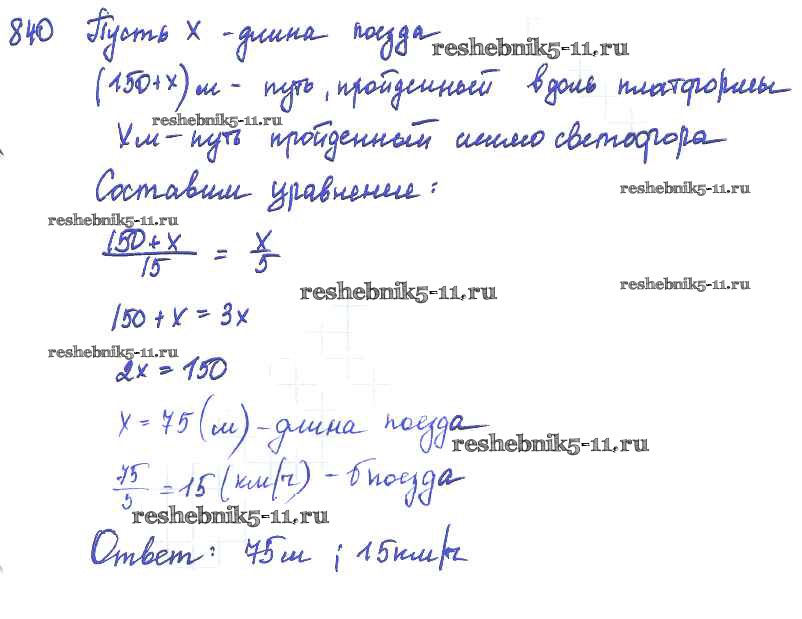 840 Пусть х - длина поезда
reshebnik5-11.ru
(150+х) м - путь, пройденный вдоль платформы
reshebnik5-11.ru
Хм - путь пройденный мимо светофора
Составим уравнение:
reshebnik5-11.ru
reshebnik5-11.ru
(150+х)/15 = х/5
reshebnik5-11.ru
reshebnik5-11.ru
150 + х = 3х
reshebnik5-11.ru
2х = 150
х = 75 (м) - длина поезда
reshebnik5-11.ru
75/5 = 15 (км/ч) - поезда
reshebnik5-11.ru
Ответ: 75м ; 15км/ч